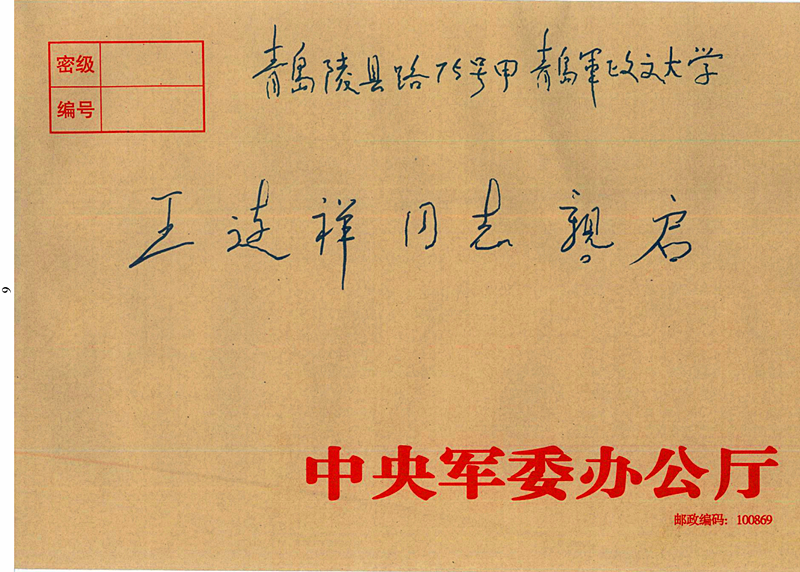 密级
编号
青岛陵县路75号甲 青岛軍政文大学
王连祥同志親启
中央军委办公厅
邮政编码：100869
9